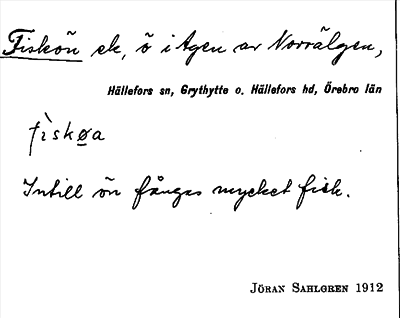 Fiskön ek, ö i Agen av Norrälgen,
Hällefors sn, Grythytte o. Hällefors hd, Örebro län
fìskøa
Intill ön fångas mycket fisk.
JÖRAN SAHLGREN 1912